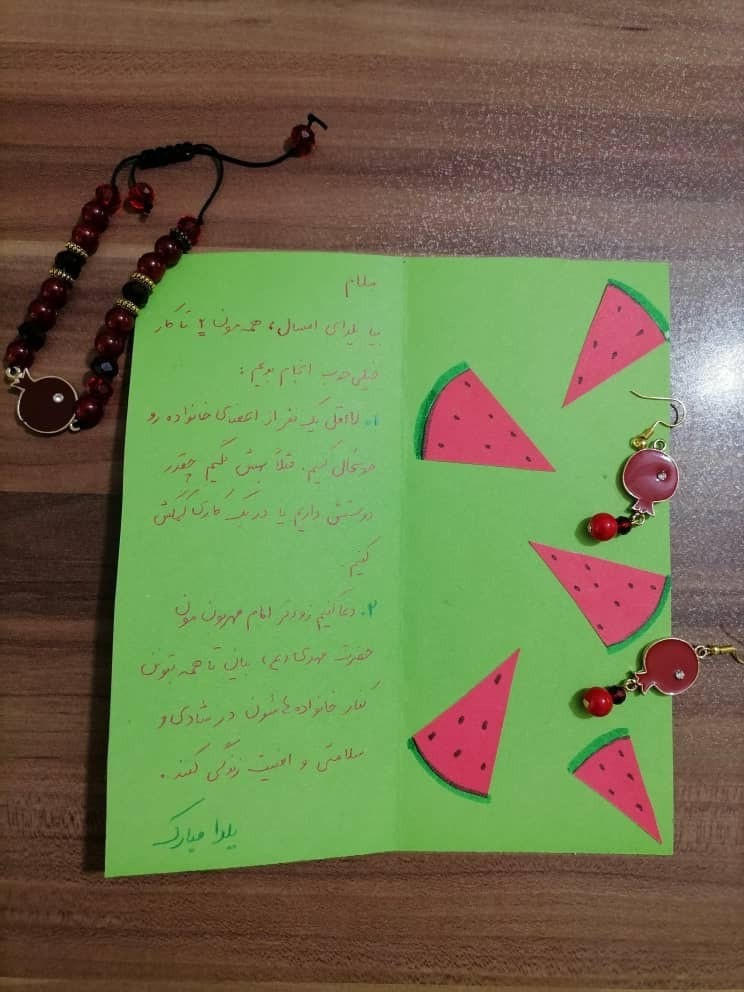 سلام
بیا یلدای امسال، همه‌مون ۲ تا کار
خیلی خوب انجام بدیم :
۱. لااقل یک نفر از اعضای خانواده رو
خوشحال کنیم. مثلاً بهش بگیم چقدر
دوستش داریم یا در یک کاری کمکش
کنیم.
۲. دعا کنیم زودتر امام مهربون مون
حضرت مهدی (عج) بیان تا همه بتونن
کنار خانواده هاشون در شادی و
سلامتی و امنیت زندگی کنند.
یلدا مبارک